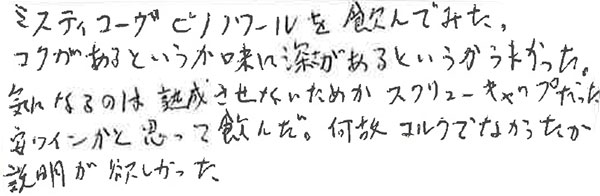 ミスティコーヴ ピノノワールを飲んでみた。
コクがあるというか味に深みがあるというかうまかった。
気になるのは熟成させないためかスクリューキャップだった
安ワインかと思って飲んだ。何故コルクでなかったか
説明が欲しかった